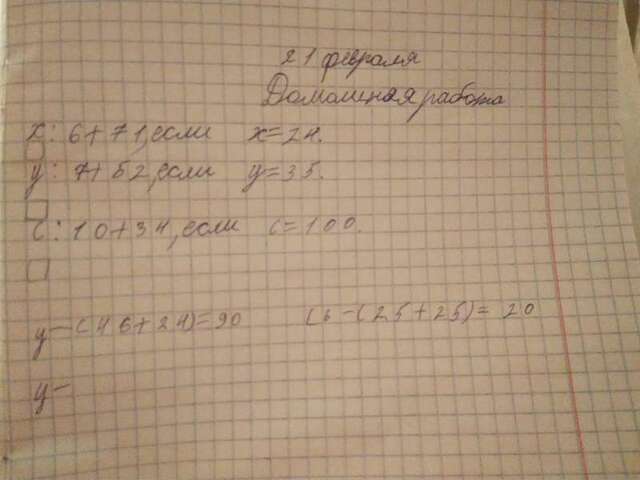 21 февраля
Домашная работа
x: 6+71, если x=24.
y: 7+52, если y=35.
c: 10+34, если c=100.
y-(46+24)=90 (6-(25+25)=20
y-